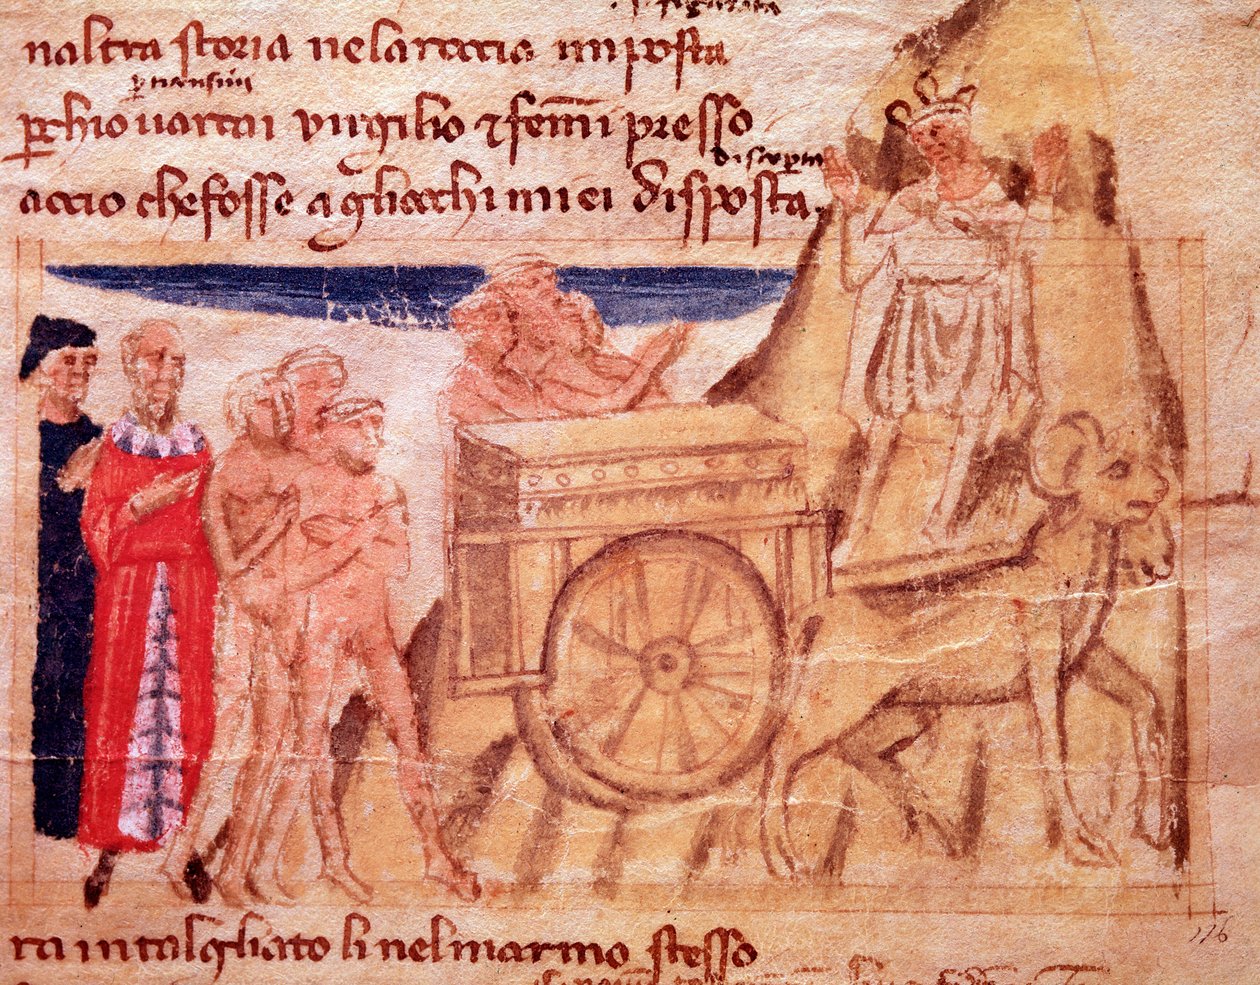 figurata
naltra storia nelaroccia imposta
ꝑ transiui
ꝑchio uarcai virgilio ⁊ fem̄i presso
discoꝑta
accio chefosse agliocchi miei disposta.
ra intalgliato li nelmarmo stesso